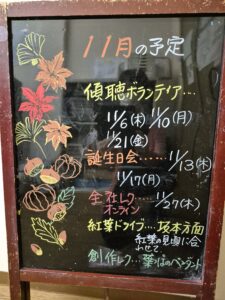 11月の予定
傾聴ボランティア…
11/6(木) 11/10(月)
11/21(金)
誕生日会……11/13(木)
11/17(月)
全社レク
オンライン…11/27(木)
紅葉ドライブ…坂本方面
紅葉の見頃に合
わせて
創作レク…葉っぱのペンダント